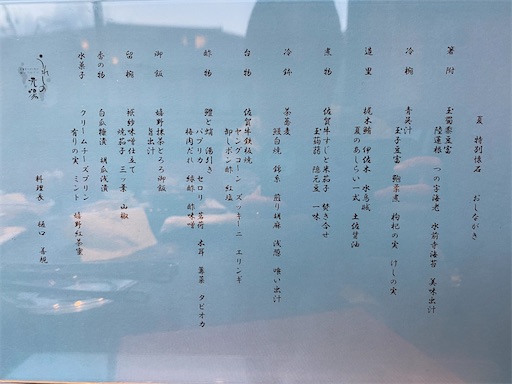 夏 特別懐石 おしながき
箸附
玉蜀黍豆富
陸蓮根 つの字海老 水前寺海苔 美味出汁
冷椀
青菜汁
玉子豆富 鮑葉煮 枸杞の実 けしの実
造里
梶木鮪 伊佐木 水烏賊
夏のあしらい一式 土佐醤油
煮物
佐賀牛すじと米茄子 焚き合せ
玉蒟蒻 隠元豆 一味
冷鉢
茶蕎麦
鰻白焼 錦糸 煎り胡麻 浅葱 唯い出汁
台物
佐賀牛鉄板焼
ヤングコーン ズッキーニ エリンギ
卸しポン酢 紅塩
酢物
鱧と蛸 湯引き
パプリカ セロリ 茗荷 木耳 蓴菜 タピオカ
梅肉だれ 緑酢 酢味噌
御飯
嬉野抹茶とろろ御飯
旨出汁
留椀
桜紗味噌仕立て
焼茄子 三ッ葉 山椒
香の物
白瓜糠漬 胡瓜浅漬
水菓子
クリームチーズプリン 嬉野紅茶蜜
有りの実 ミント
料理長 樋口 善規